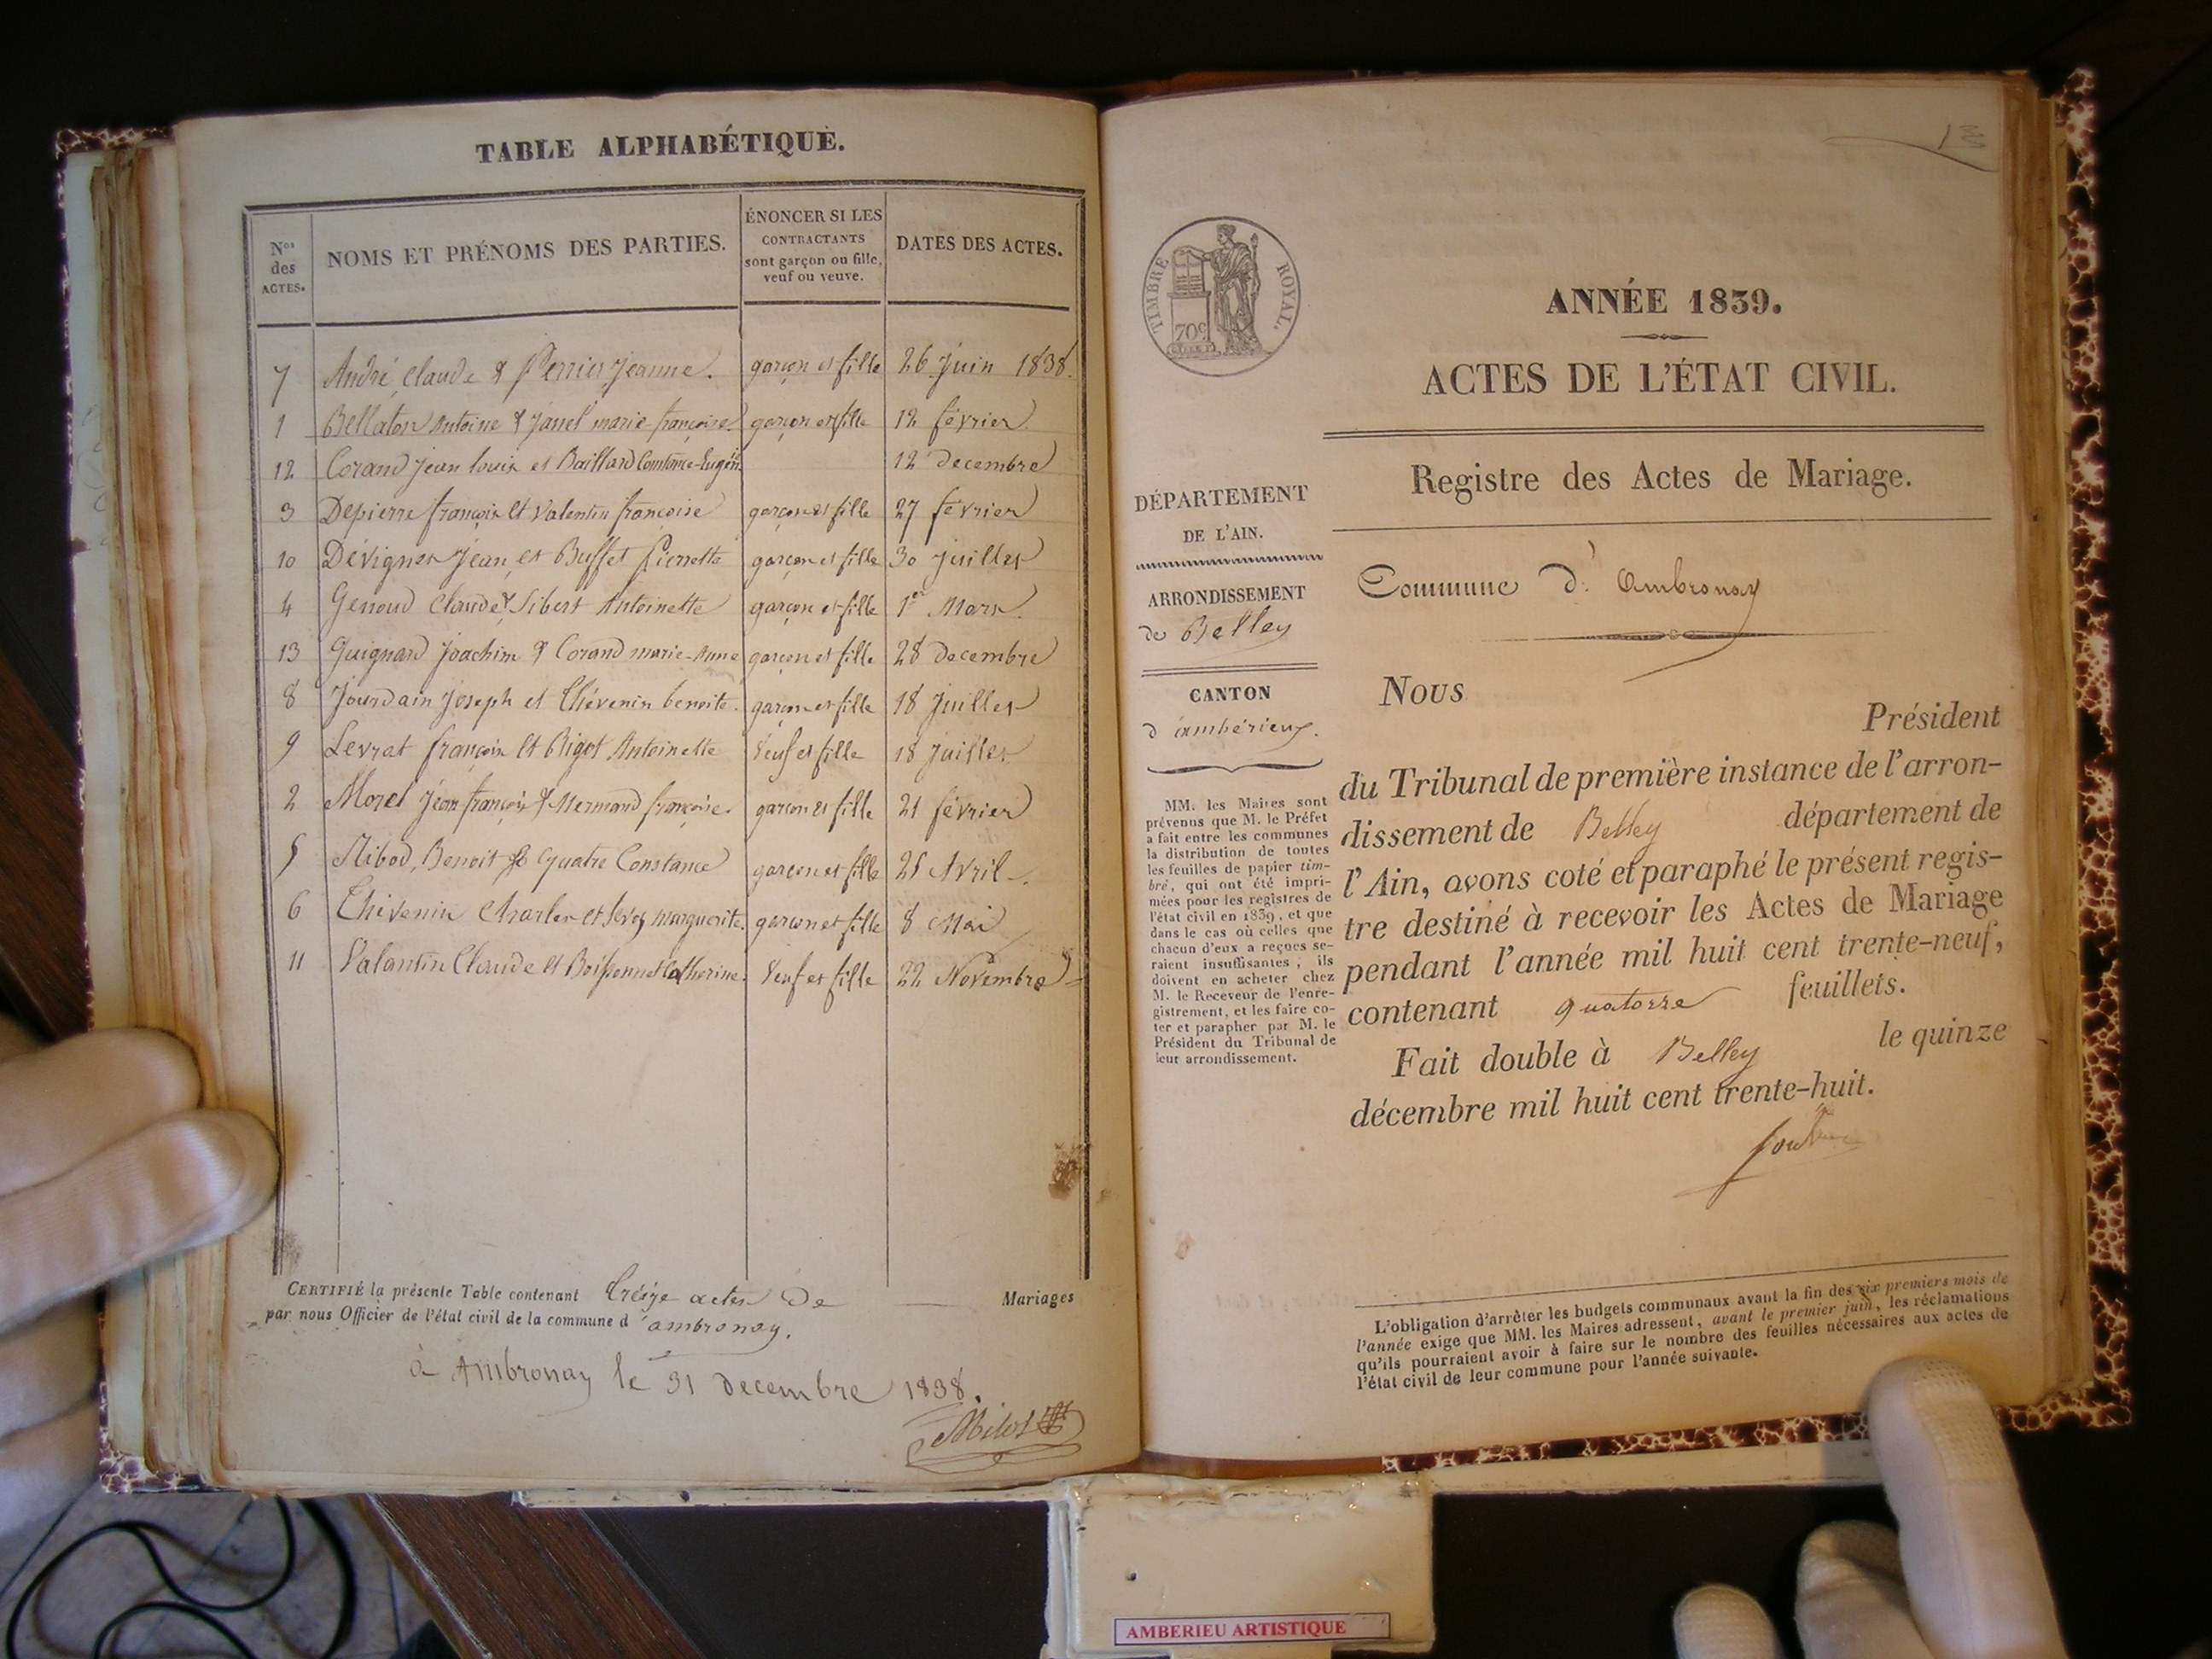 TABLE ALPHABÉTIQUE.
Nos des ACTES.
NOMS ET PRÉNOMS DES PARTIES.
ÉNONCER SI LES CONTRACTANTS sont garçon ou fille, veuf ou veuve.
DATES DES ACTES.
7 André, Claude & Perrier Jeanne. garçon et fille 26 Juin 1838.
1 Bellaton Antoine & Janel marie françoise garçon et fille 12 février
12 Corand Jean louis et Baillard Constance-Eugénie 12 decembre
3 Depierre françois Et Valentin françoise garçon et fille 27 février
10 Dévignes Jean, et Buffet Pierrette garçon et fille 30 Juillet
4 Genoud Claude & Sibert Antoinette garçon et fille 1er Mars.
13 Guignard Joachim & Corand marie-Anne garçon et fille 28 decembre
8 Jourdain Joseph et Thévenin benoite. garçon et fille 18 Juillet
9 Levrat françois Et Rigot Antoinette Veuf et fille 18 Juillet
2 Morel Jean françois & Mermand françoise. garçon et fille 21 février
5 Benoit quatre Constance garçon et fille 25 Avril
6 Thévenin Charles et marguerite. garçon et fille 8 Mai
11 Valantin Claude Et Catherine. Veuf et fille 22 Novembre
CERTIFIÉ la présente Table contenant treize actes de Mariages
par nous Officier de l'état civil de la commune d'ambronay.
à Ambronay le 31 decembre 1838.
TIMBRE ROYAL.
70c
ANNÉE 1839.
ACTES DE L'ÉTAT CIVIL.
Registre des Actes de Mariage.
DÉPARTEMENT
DE L'AIN.
ARRONDISSEMENT
de Belley
CANTON
d'ambérieux.
MM. les Maires sont
prévenus que M. le Préfet
a fait entre les communes
la distribution de toutes
les feuilles de papier tim-
bré, qui ont été impri-
mées pour les registres de
l'état civil en 1839, et que
dans le cas où celles que
chacun d'eux a reçues se-
raient insuffisantes, ils
doivent en acheter chez
M. le Receveur de l'enre-
gistrement, et les faire co-
ter et parapher par M. le
Président du Tribunal de
leur arrondissement.
Commune d'Ambronay
Nous
Président
du Tribunal de première instance de l'arron-
dissement de Belley département de
l'Ain, avons coté et paraphé le présent regis-
tre destiné à recevoir les Actes de Mariage
pendant l'année mil huit cent trente-neuf,
contenant quatorze feuillets.
Fait double à Belley le quinze
décembre mil huit cent trente-huit.
L'obligation d'arrêter les budgets communaux avant la fin des six premiers mois de
l'année exige que MM. les Maires adressent, avant le premier juin, les réclamations
qu'ils pourraient avoir à faire sur le nombre des feuilles nécessaires aux actes de
l'état civil de leur commune pour l'année suivante.
AMBERIEU ARTISTIQUE